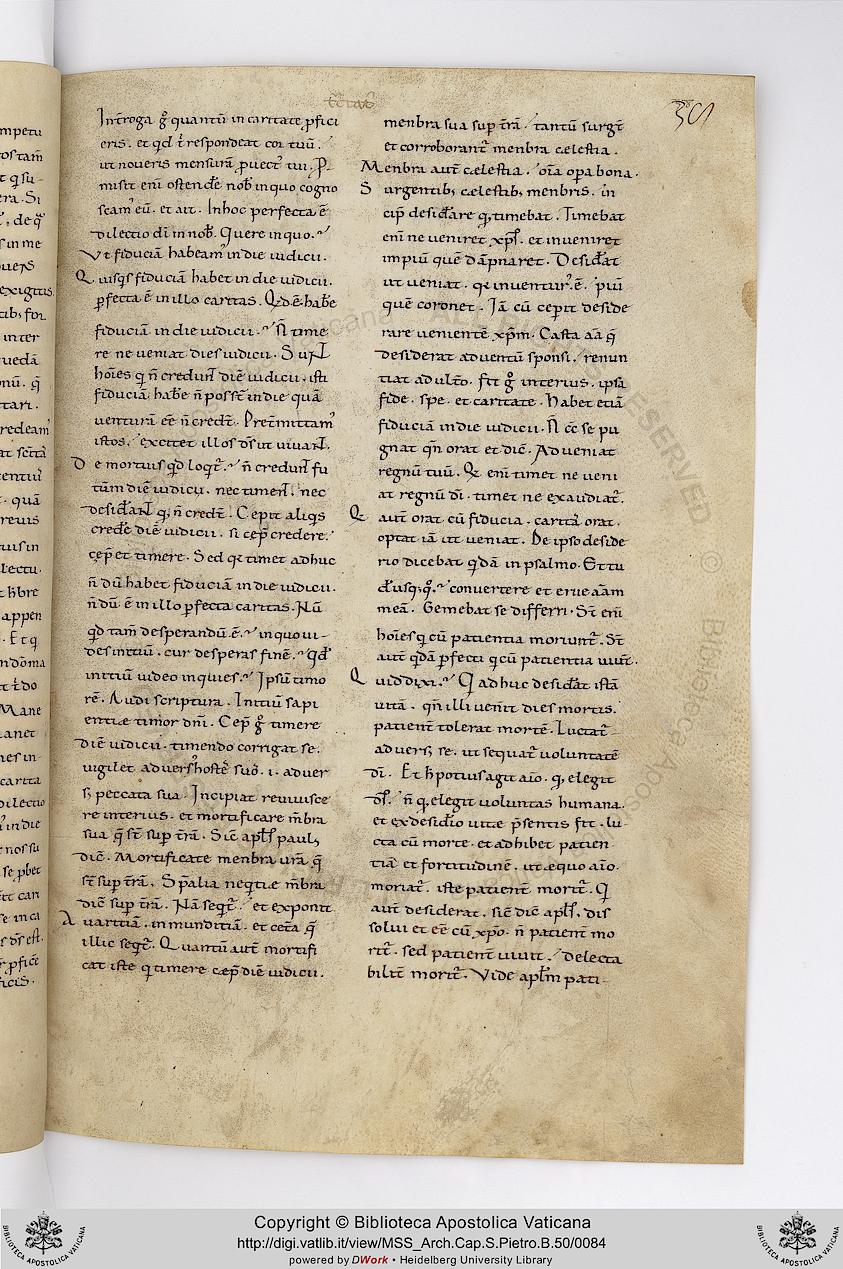 Int̄roga g̊ quantū in caritate ꝓfici
eris. et qd t̄ respondeat cor tuū.
ut noveris mensurā ꝓvect' tui. P̱
misit enī ostendē nob̄ in quo cogno
scam' eū. et ait. In hoc perfecta ē
dilectio dī in nob̄. Quere in quo.
Vt fiduciā habeam' in die iudicii.
Q uisq;s fiduciā habet in die iudicii.
ꝑfecta ē in illo caritas. Qd ē habe
fiduciā in die iudicii. ñ time
re ne veniat dies iudicii. Sunt
hoīes q ñ credunt diē iudicii. isti
fiduciā habe ñ posst̄ in die quā
venturā eē ñ credt̄. Pretmittam'
istos. excitet illos ds ut vivant.
D e mortuis qd loqr̄. ñ credunt fu
tūm diē iudicii. nec timent. nec
desidant q; ñ credt̄. Cepit aliq;s
credē diē iudicii. si cep̄ credere.
cep̄ et timere. Sed q; timet adhuc
ñ dū habet fiduciā in die iudicii.
ñ dū ē in illo ꝑfecta caritas. Nū
qd tam̄ desperandū ē. in quo vi-
des initiū. cur desperas finē. qd
initiū video inquies. Ipsū timo
rē. Audi scriptura. Initiū sapi
entiæ timor dnī. Cep̄ g̊ timere
diē iudicii. timendo corrigat se.
vigilet advers' hostē suō. i. adver
s; peccata sua. Incipiat revivisce
re interius. et mortificare m̄bra
sua q̄ st̄ sup t̄rā. Sic̄ apls paul;
dic̄. Mortificate menbra vrā q̄
st̄ sup t̄rā. Sp̄alia neqtiæ m̄bra
dic̄ sup t̄rā. Nā seqr̄. et exponit
A varitiā. in munditiā. et cet̄a q̄
illic seqr̄. Quantū aut̄ mortifi
cat iste q timere cæp̄ diē iudicii.
menbra sua sup t̄rā. tantū surgt̄
et corroborant' menbra cælestia.
Menbra aut̄ cælestia. oīa opa bona.
S urgentib; cælestib; menbris. in
cip̄ desidare q; timebat. Timebat
enī ne veniret xp̄s. et inveniret
impiū quē dāpnaret. Desidat
ut veniat. q; inventur' ē. piū
quē coronet. Iā cū cepit deside
rare venientē xp̄m. Casta aīa q̄
desiderat adventū sponsi. renun
tiat adult̄o. fit g̊ interius. ipsa
fide. spe. et caritate. Habet etiā
fiduciā in die iudicii. ñ cc̄ se pu
gnat qñ orat et dic̄. Adveniat
regnū tuū. Q; enī timet ne veni
at regnū dī. timet ne exaudiat'.
Q aut̄ orat cū fiducia. carit' orat.
optat iā ut veniat. De ipso deside
rio dicebat qdā in psalmo. Et tu
dusq;q;. convertere et erue aām
meā. Gemebat se differri. St̄ enī
hoīes q cū patientia moriunt'. St̄
aut̄ qdā ꝑfecti q cū patientia vivt̄.
Q uid dixi. Q adhuc desidat istā
vitā. qñ illi venit dies mortis.
patient̄ tolerat mortē. Luctat'
advers; se. ut sequat' voluntatē
dī. Et h̄ potius agit aīo. q; elegit
ds̄. ñ q; elegit voluntas humana.
et ex desidio vitæ p̄sentis fit. lu-
cta cū morte. et adhibet patien-
tiā et fortitudinē. ut æquo aīo.
moriat'. iste patient̄ morit'. Q
aut̄ desiderat. sic̄ dic̄ apls. dis
solvi et eē cū xp̄o. ñ patient̄ mo
rit'. sed patient̄ vivit. delecta
bilit̄ morit'. Vide aplm pati-
Copyright © Biblioteca Apostolica Vaticana
http://digi.vatlib.it/view/MSS_Arch.Cap.S.Pietro.B.50/0084
powered by DWork • Heidelberg University Library